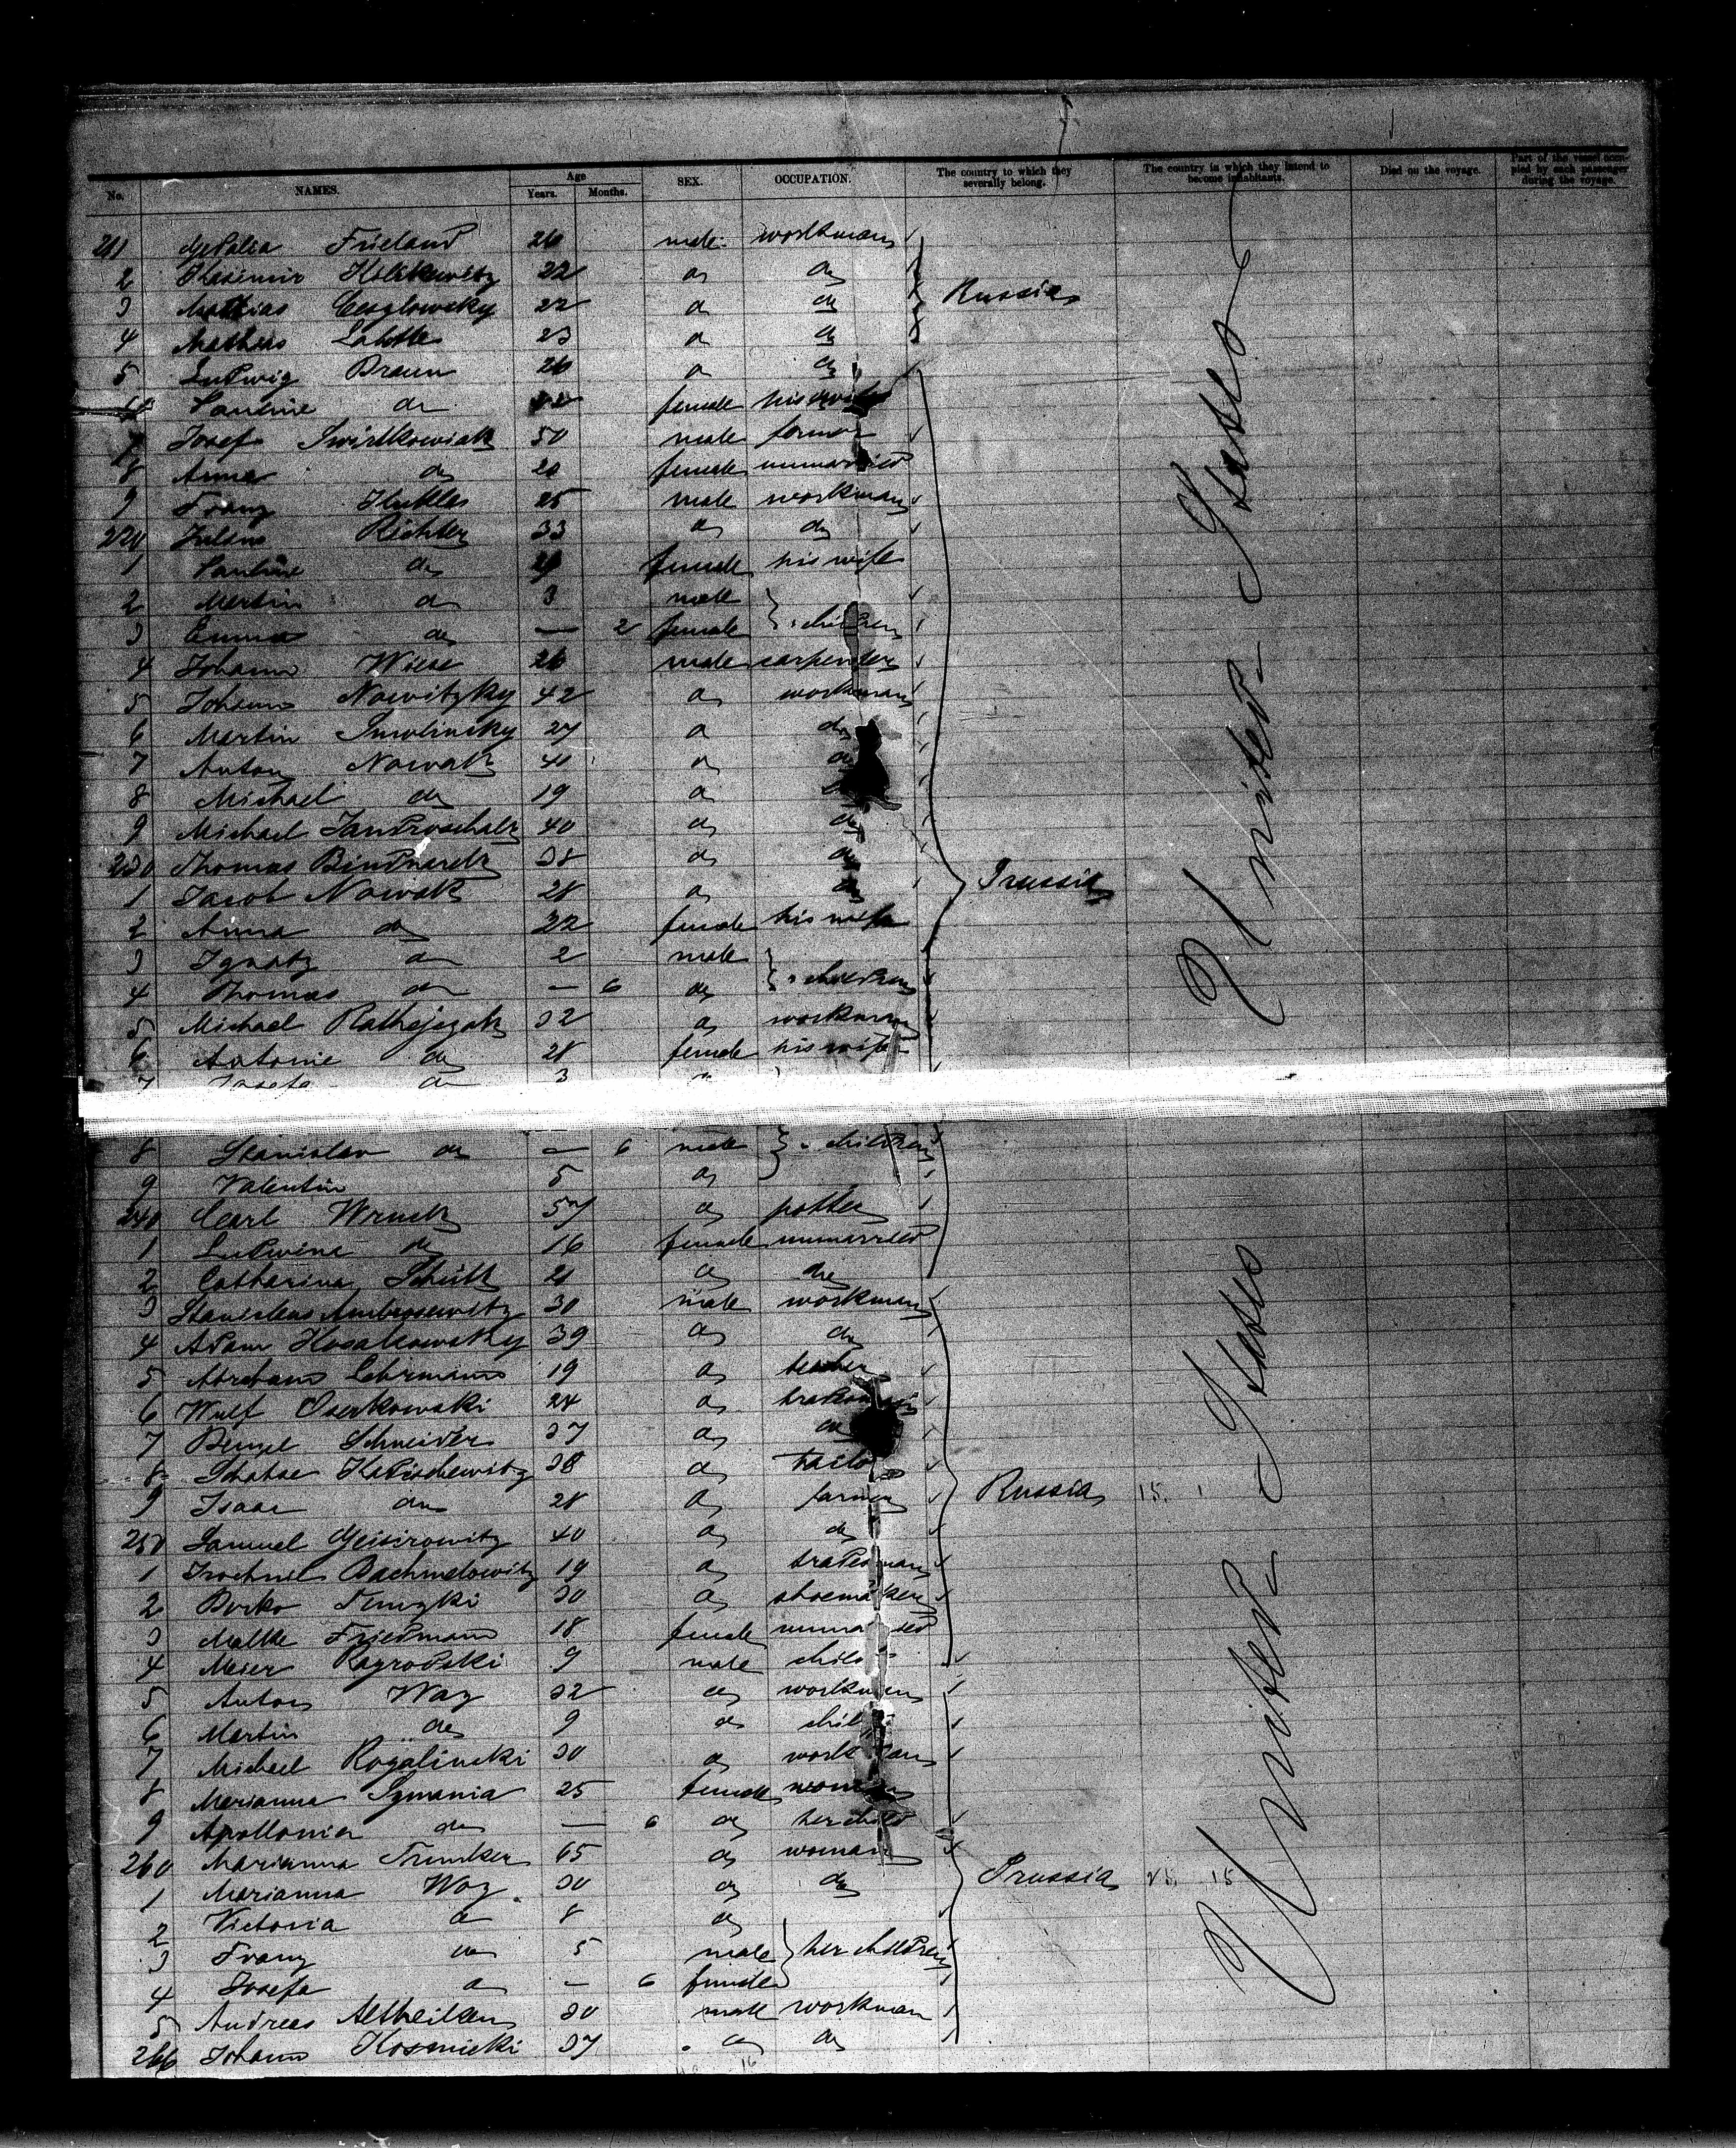 No. NAMES. Age Years. Months. SEX. OCCUPATION. The country to which they severally belong. The country in which they intend to become inhabitants. Died on the voyage. Part of the vessel occupied by each passenger during the voyage.
211 Frieland 26 male workman
2 Kasimir 22 do do
3 Mathias 22 do do Russia
4 Mathias 23 do do
5 Ludwig Braun 26 do do
6 Pauline do female his wife
7 Josef Swirtkowiak 50 male farmer
8 Anna do 20 female unmarried
9 Franz 25 male workman
220 Julius Richter 33 do do
1 Pauline do female his wife
2 Martin do 3 male
3 Emma do — 2 female children
4 Johann Wiese 26 male carpenter
5 Johann Nowitzky 42 do workman
6 Martin Smolinsky 27 do do
7 Anton Nowak 40 do do
8 Michael do 19 do
9 Michael 40 do do
230 Thomas 38 do do
1 Jacob Nowak 28 do do Prussia
2 Anna do 22 female his wife
3 Ignatz do 2 male
4 Thomas do — 6 do children
5 Michael Rathejezak 32 do workman
6 Antonie do 28 female his wife
7 Josefa do 3
United States
8 Stanislav do — 6 male children
9 Valentin 5 do
240 Carl Wruck 57 do potter
1 Ludwina do 16 female unmarried
2 Catharina Schütt 21 do do
3 Stanislaus Ambrosewitz 30 male workman
4 Adam Kosakowsky 39 do do
5 Abraham Lehrmann 19 do teacher
6 Wulf Oserkowski 24 do tradesman
7 Schneider 37 do do
8 Kadischewitz 38 do tailor
9 Isaac do 28 do farmer Russia
250 Samuel 40 do do
1 19 do tradesman
2 Borko 30 do shoemaker
3 Malke Friedmann 18 female unmarried
4 Meier Pogrodski 9 male child
5 Anton Way 32 do workman
6 Martin do 9 do child
7 Michael Rogalinski 30 do workman
8 Marianna Symania 25 female woman
9 Apollonia do — 6 do her child
260 Marianna 65 do woman
1 Marianna Way 30 do do Prussia
2 Victoria do 8 do
3 Franz do 5 male her children
4 Josefa do — 6 female
5 Andreas 30 male workman
266 Johann Kosmicki 37 do do
United States